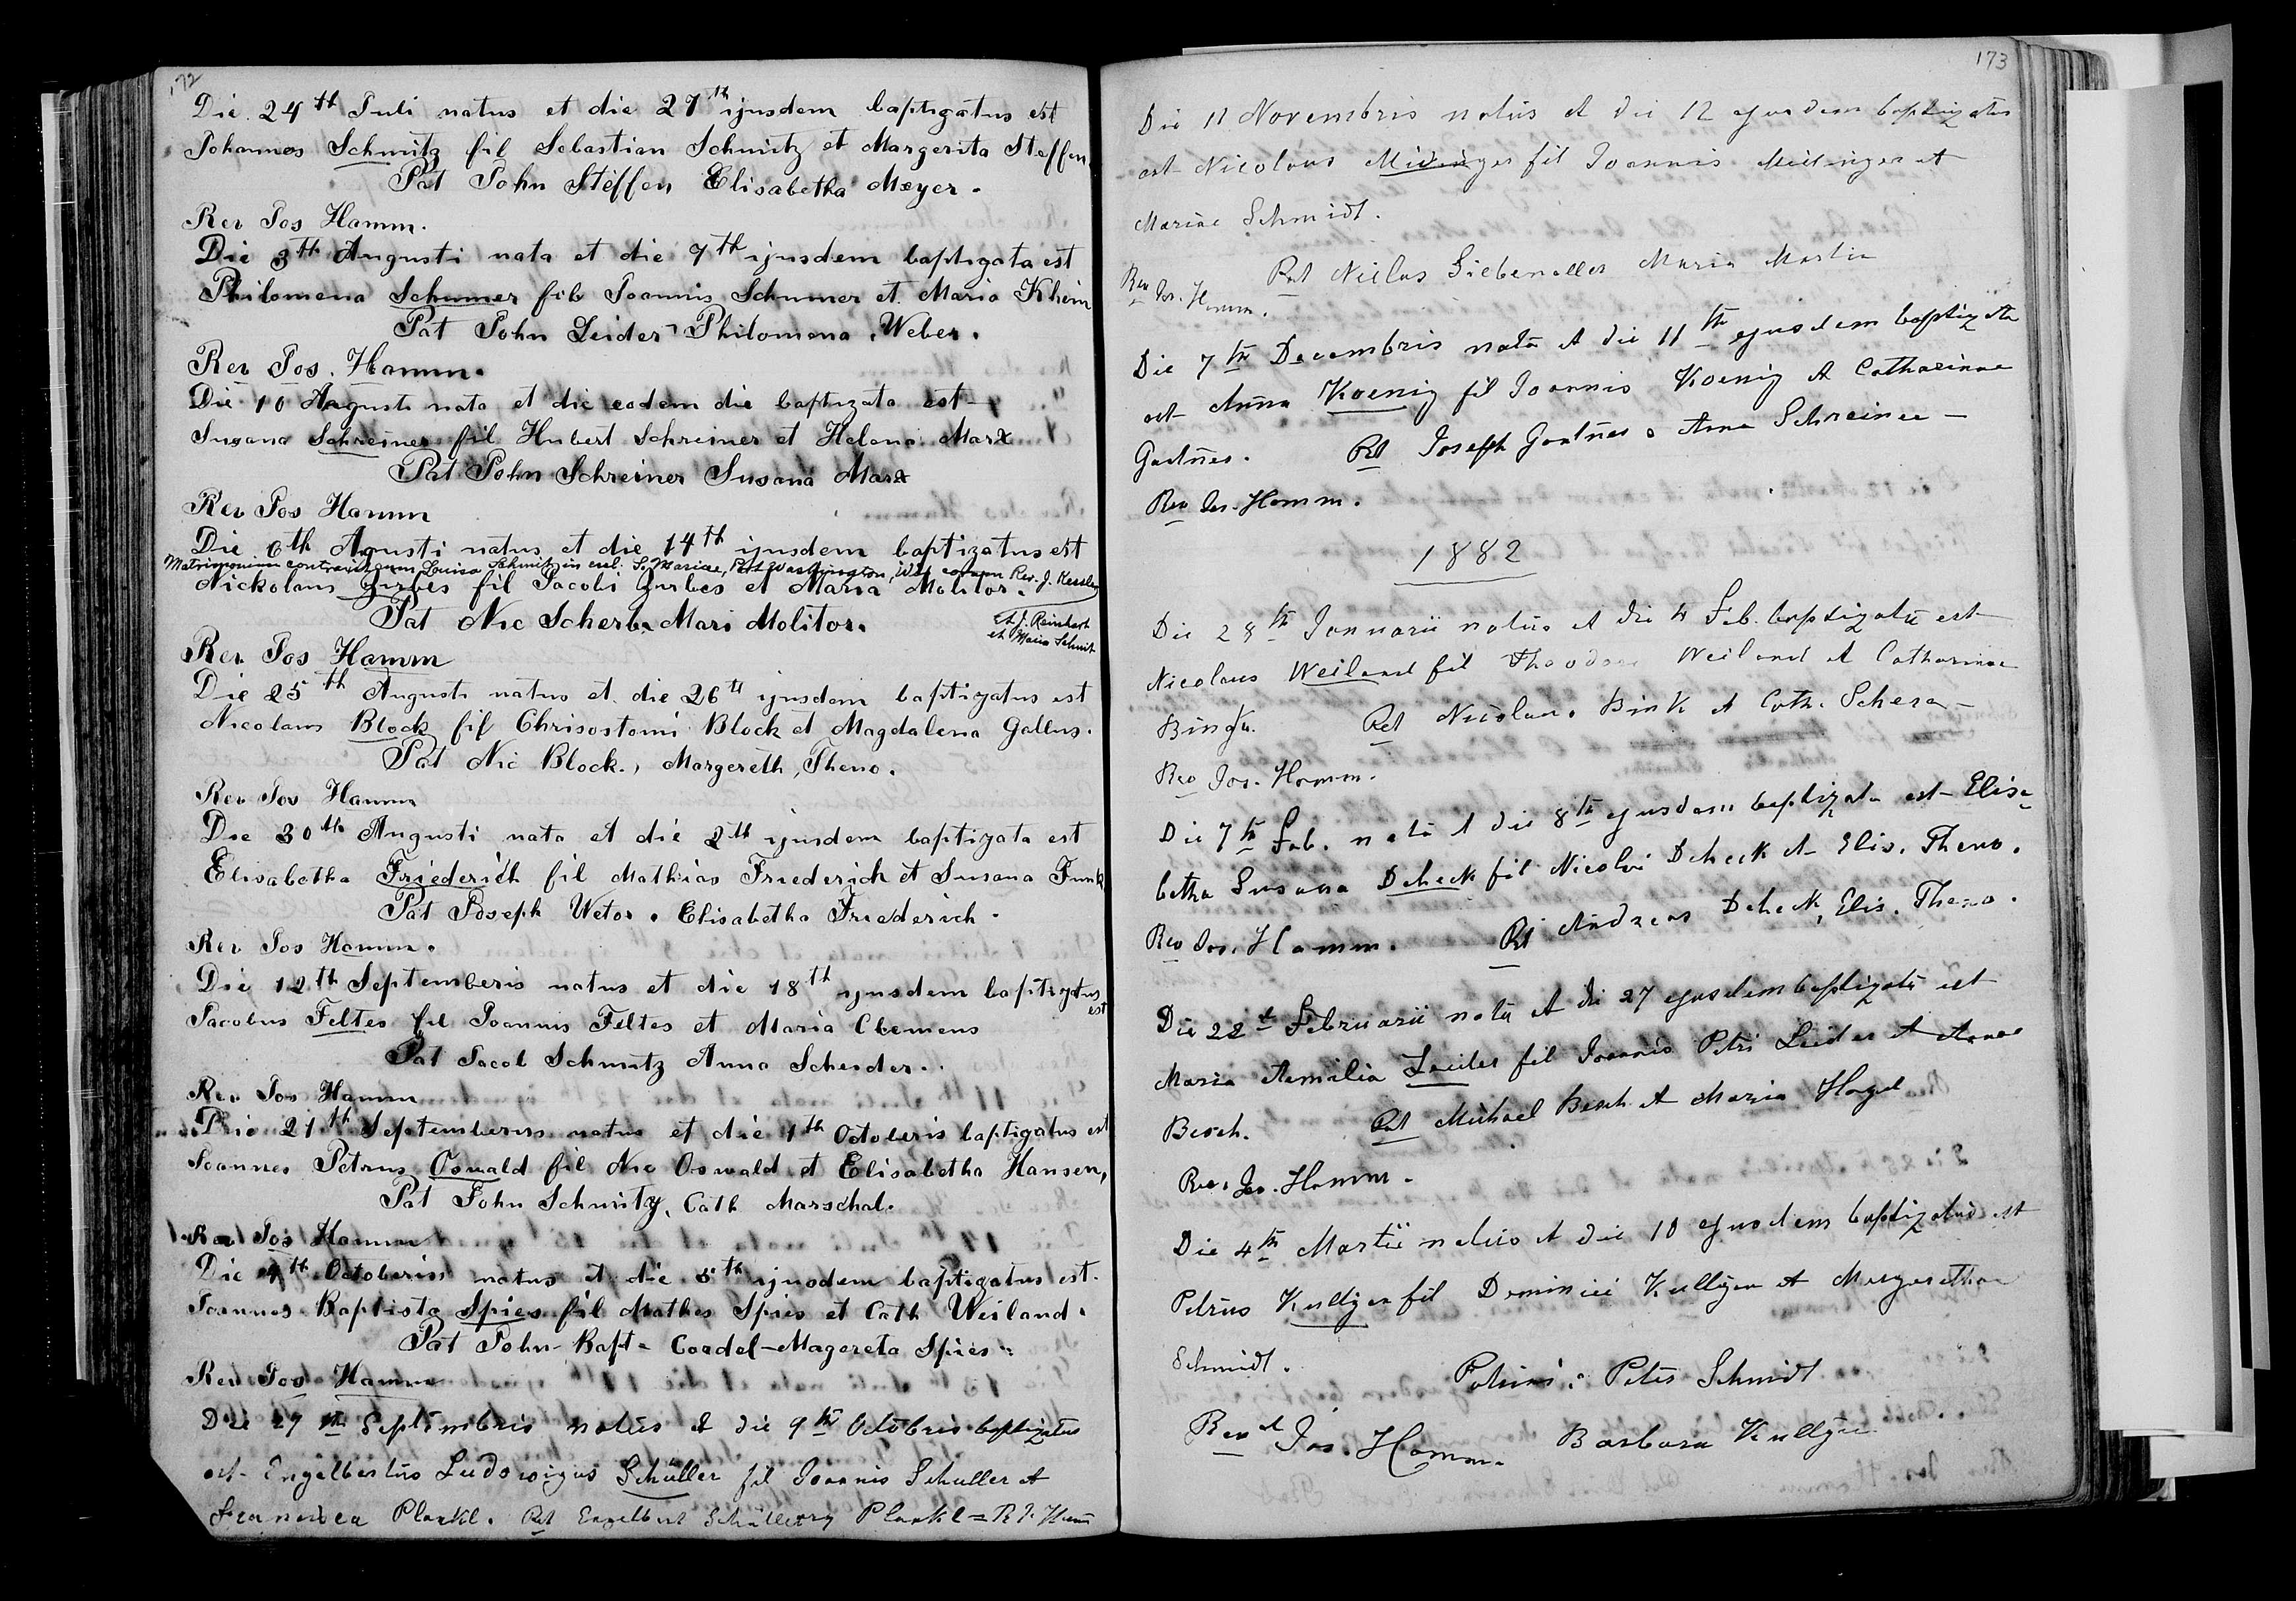 172
Die 24th Juli natus et die 27th ijusdem baptizatus est
Johannes Schmitz fil Sebastian Schmitz et Margerita Steffen
Pat John Steffen Elisabetha Meyer.
Rev Jos Hamm.
Die 3th Augusti nata et die 7th ijusdem baptizata est
Philomena Schumer fil Joannis Schumer et Maria Khein
Pat John Leider Philomena Weber.
Rev Jos. Hamm.
Die 10 Augusti nata et die eodem die baptizata est
Susana Schreiner fil Hubert Schreiner et Helena Marx
Pat John Schreiner Susana Marx
Rev Jos Hamm
Die 6th Agusti natus et die 14th ijusdem baptizatus est
Matrimonium contraxit cum Louisa Schmit in eccl. S. Mariae, Port Washington, Wis coram Rev. J. Kessler
Nickolaus Gurbes fil Jacobi Gurbes et Maria Molitor.
Pat Nic Scherb. Mari Molitor.
et J. Reinhart
et Maria Schmit
Rev Jos Hamm
Die 25th Augusti natus et die 26th ijusdem baptizatus est
Nicolaus Block fil Chrisostomi Block et Magdalena Gallus.
Pat Nic Block., Margereth, Theno.
Rev Jos Hamm
Die 30th Augusti nata et die 2th ijusdem baptizata est
Elisabetha Friederich fil Mathias Friederich et Susana Funk
Pat Joseph Wetor. Elisabetha Friederich.
Rev Jos Hamm.
Die 12th Septemberis natus et die 18th ijusdem baptizatus est
Jacobus Feltes fil Joannis Feltes et Maria Clemens
Pat Jacob Schmitz Anna Scheider.
Rev Jos Hamm
Die 21th Septemberis natus et die 1th Octoberis baptizatus est
Joannes Petrus Oswald fil Nic Oswald et Elisabetha Hansen,
Pat John Schmitz, Cath Marschal.
Rev Jos Hamm
Die 4th Octoberis natus et die 5th ijusdem baptizatus est.
Joannes Baptista Spies fil Mathes Spies et Cath Weiland.
Pat John-Bapt- Condel-Magereta Spies
Rev Jos Hamm
Die 27th Septembris natus et die 9th Octobris baptizatus
est Engelbertus Ludowigus Schuller fil Joannis Schuller et
Francisca Plankl. Pat Engelbert Schuller Plankl = R J. Hamm
173
Die 11 Novembris natus et die 12 ejusdem baptizatus
est Nicolaus Midinger fil Joannis Meidinger et
Mariae Schmidt.
Pat Niclas Siebenaller Maria Martin
Rev Jos. Hamm.
Die 7th Decembris nata et die 11th ejusdem baptizata
est Anna Koenig fil Joannis Koenig et Catharinae
Gantner. Pat Joseph Gantner & Anna Schreiner
Rev Jos. Hamm.
1882
Die 28th Januarii natus et die 4 Feb. baptizatu est
Nicolaus Weiland fil Theodore Weiland et Catharinae
Bink. Pat Nicolaus Bink et Cath. Scherer
Rev Jos. Hamm.
Die 7th Feb. nata et die 8th ejusdem baptizata est Elisa
betha Susana Scheck fil Nicolai Scheck et Elis. Theno.
Rev Jos. Hamm. Pat Andreas Scheck, Elis. Theno.
Die 22d Februarii nata et die 27 ejusdem baptizata est
Maria Aemilia Leider fil Joannis Petri Leider et Annae
Besch. Pat Michael Besch et Maria Hagel
Rev. Jos. Hamm.
Die 4th Martii natus et die 10 ejusdem baptizatus est
Petrus Kultgen fil Dominici Kultgen et Margarethae
Schmidt. Patrini: Peter Schmidt
Revd Jos. Hamm. Barbara Kultgen